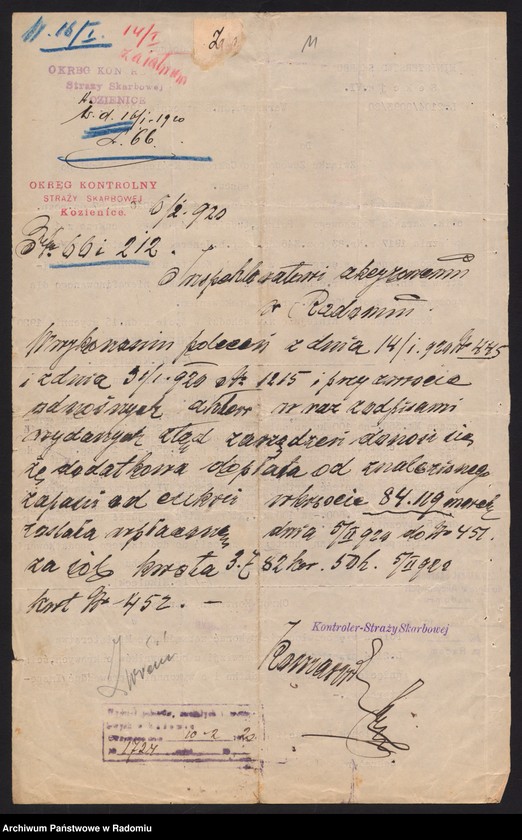 16/I.
14/I
OKRĘG KON
Straży Skarbowej
KOZIENICE
16/I. 1920
L. 66
OKRĘG KONTROLNY
STRAŻY SKARBOWEJ
Kozienice.
5/2. 920
66 i 212.
Inspektoratowi akcyzowemu
w Radomiu.
W wykonaniu poleceń z dnia 14/I. 920 Nr 445
i z dnia 31/I. 920 Nr. 1215 i przy zwrocie
odnośnych aktów wraz z odpisami
wydanych stąd zarządzeń donosi się
że dodatkowa dopłata od znalezionego
zapasu od cukru w kwocie 84.119 marek
została wpłacona dnia 5/II 920 do Nr 451.
za sól kwota 3.782 kor. 50 h. 5/II 920
Nr 452. —
Kontroler-Straży Skarbowej
10-2 20
1724
Archiwum Państwowe w Radomiu